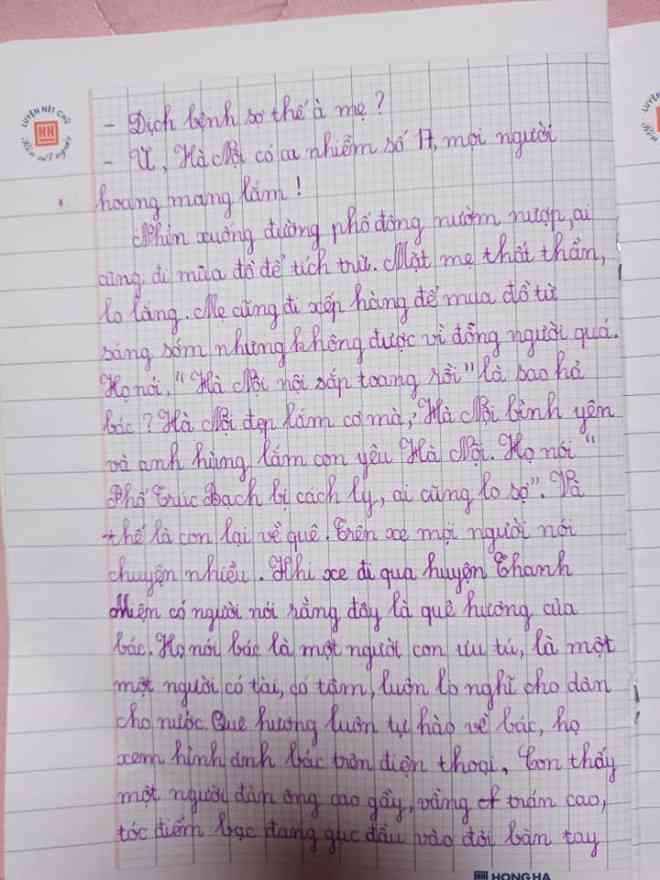 LUYỆN NÉT CHỮ
HH
- Dịch bệnh sợ thế à mẹ?
- Ừ, Hà Nội có ca nhiễm số 17, mọi người
hoang mang lắm!
Nhìn xuống đường phố đông nườm nượp, ai
cũng đi mũa đồ để tích trữ. Mặt mẹ thất thần,
lo lắng. Mẹ cũng đi xếp hàng để mua đồ từ
sáng sớm nhưng không được vì đông người quá.
Họ nói, "Hà Nội nội sắp toang rồi" là sao hả
bác? Hà Nội đẹp lắm cơ mà, Hà Nội bình yên
và anh hùng lắm con yêu Hà Nội. Họ nói "
Phố Trúc Bạch bị cách ly, ai cũng lo sợ". Và
thế là con lại về quê. Trên xe mọi người nói
chuyện nhiều. Khi xe đi qua huyện Thanh
Miện có người nói rằng đây là quê hương của
bác. Họ nói bác là một người con ưu tú, là một
một người có tài, có tâm, luôn lo nghĩ cho dân
cho nước. Quê hương luôn tự hào về bác, họ
xem hình ảnh bác trên điện thoại. Con thấy
một người đàn ông cao gầy, vầng trán cao,
tóc điểm bạc đang gục đầu vào đôi bàn tay
HONG HA